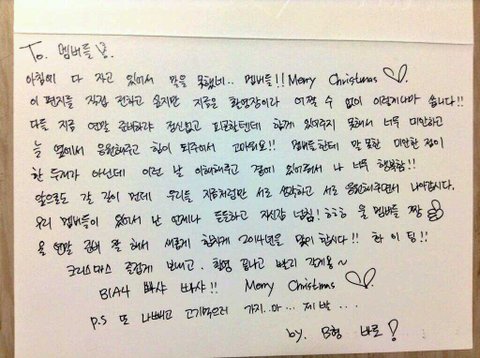 To. 멤버들
아침에 다 자고 있어서 말을 못했네.. 멤버들!! Merry Christmas ♡.
이 편지를 직접 전하고 싶지만 지금은 촬영장이라 어쩔 수 없이 이렇게나마 씁니다!!
다들 지금 연말 준비하랴 정신없고 피곤할텐데 함께 있어주지 못해서 너무 미안하고
늘 옆에서 응원해주고 힘이 되주어서 고마워요!! 멤버들한테 말 못한 미안한 점이
한 두개가 아닌데 이런 날 이해해주고 곁에 있어줘서 나 너무 행복함!!
앞으로도 갈 길이 먼데 우리들 지금처럼만 서로 생각하고 서로 응원해주면서 나아갑시다.
우리 멤버들이 있어서 난 언제나 든든하고 자신감 넘침! ㅎㅎㅎ 울 멤버들 짱
올 연말 준비 잘 해서 새롭게 힘차게 2014년을 맞이 합시다!! 화 이 팅!!
크리스마스 즐겁게 보내고. 촬영 끝나고 빨리 갈게용~
B1A4 빠샤 빠샤!! Merry Christmas ♡.
P.S 또 나빼고 고기먹으러 가지..마... 제 발...
by. B형 바로!